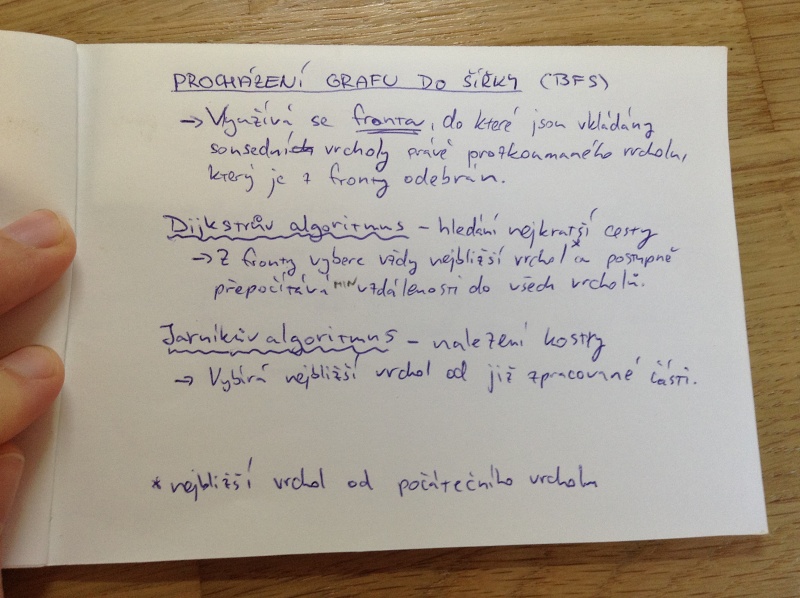 PROCHÁZENÍ GRAFU DO ŠÍŘKY (BFS)
→ Využívá se fronta, do které jsou vkládány
sousední vrcholy právě prozkoumaného vrcholu,
který je z fronty odebrán.
Dijkstrův algoritmus - hledání nejkratší cesty
→ Z fronty vybere vždy nejbližší vrchol* a postupně
přepočítává MIN vzdálenosti do všech vrcholů.
Jarníkův algoritmus - nalezení kostry
→ Vybírá nejbližší vrchol od již zpracované části.
* nejbližší vrchol od počátečního vrcholu